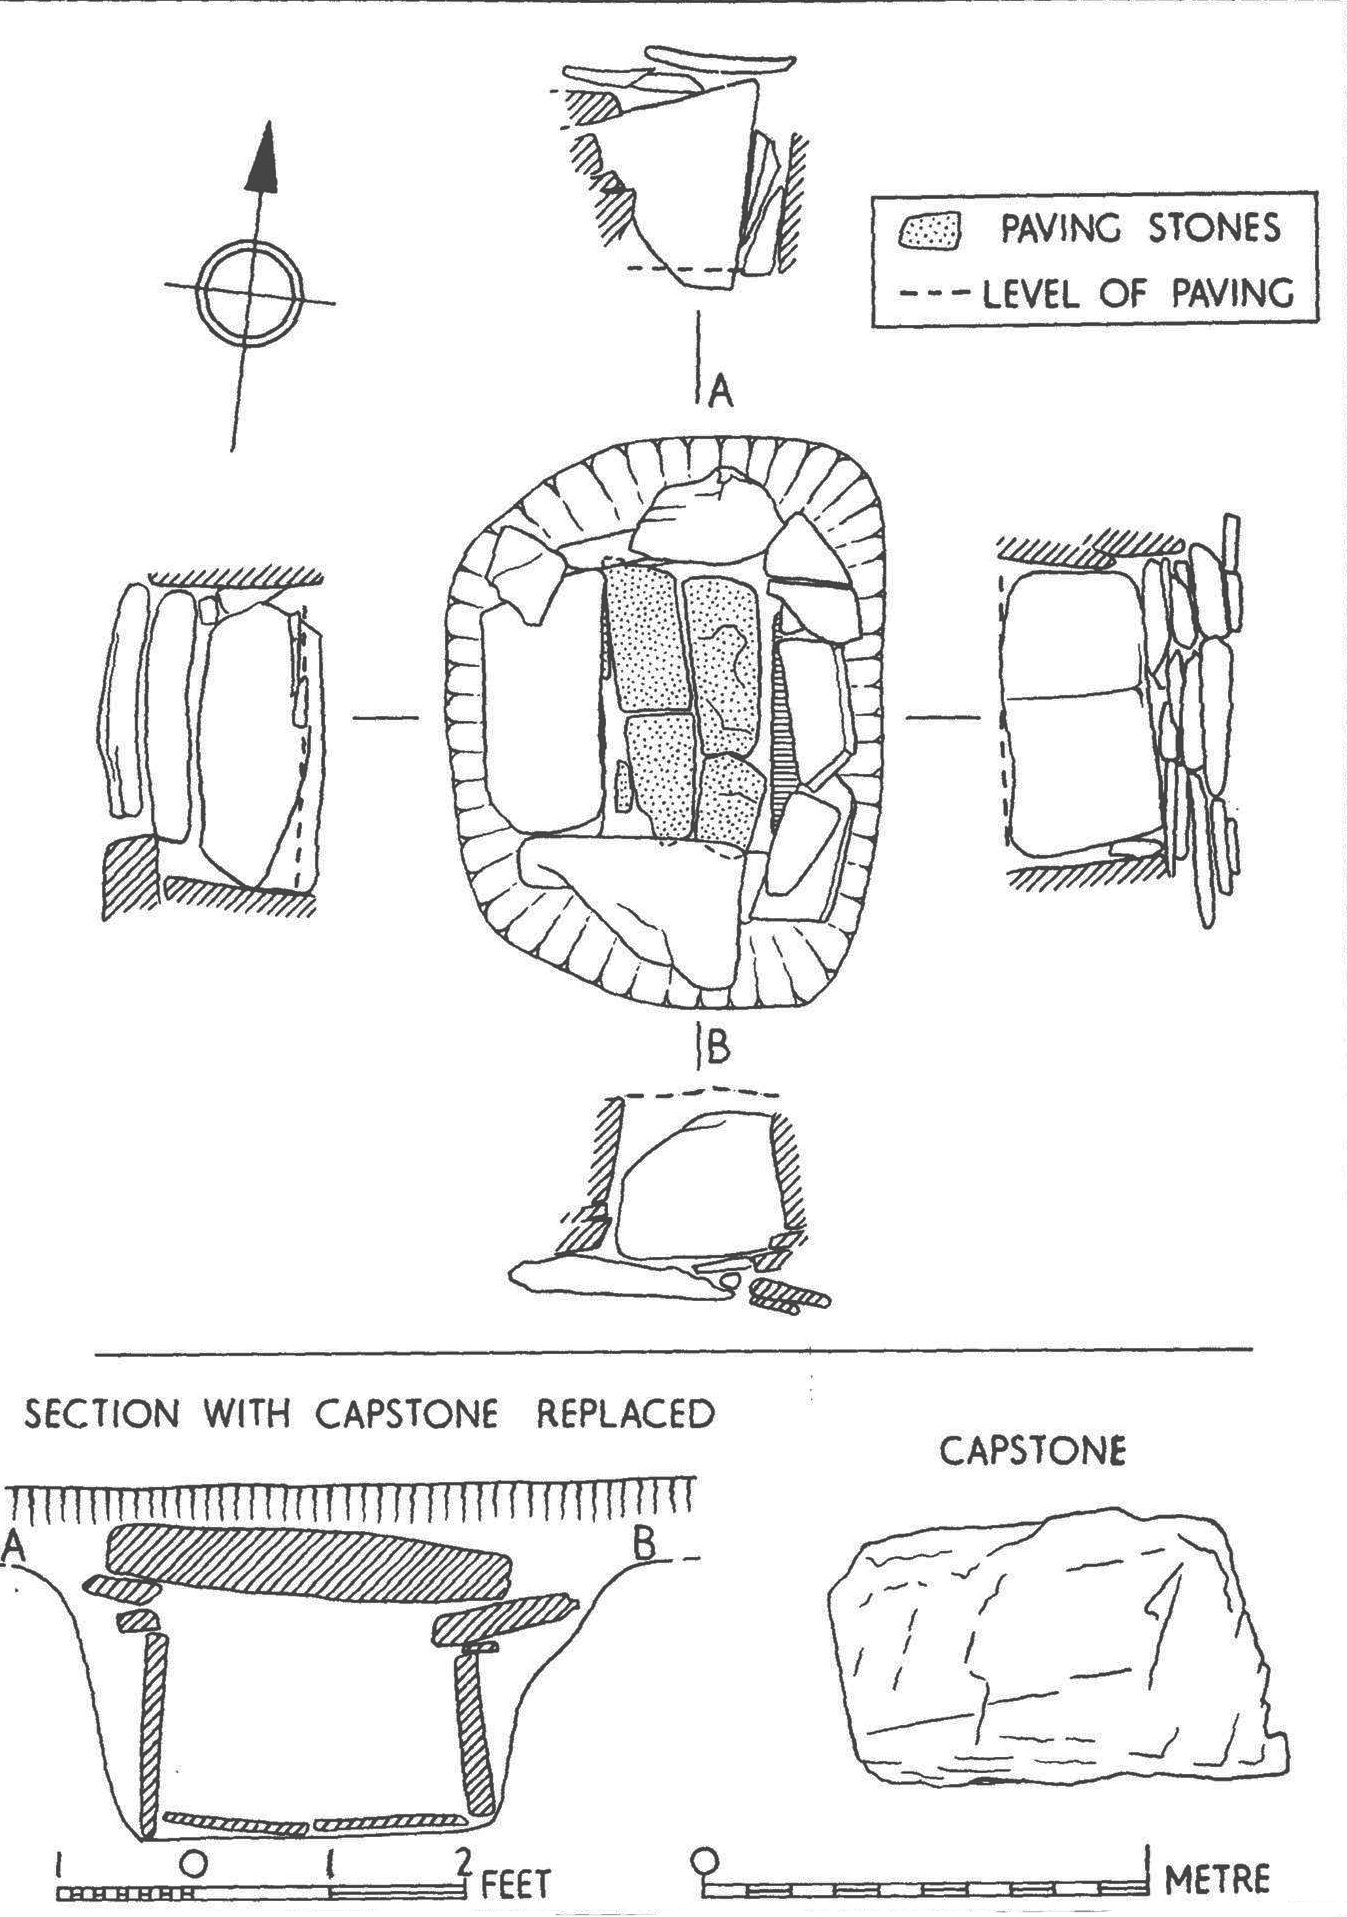 PAVING STONES
LEVEL OF PAVING
A
B
SECTION WITH CAPSTONE REPLACED
CAPSTONE
A B
1 0 1 2 FEET
0 1 METRE